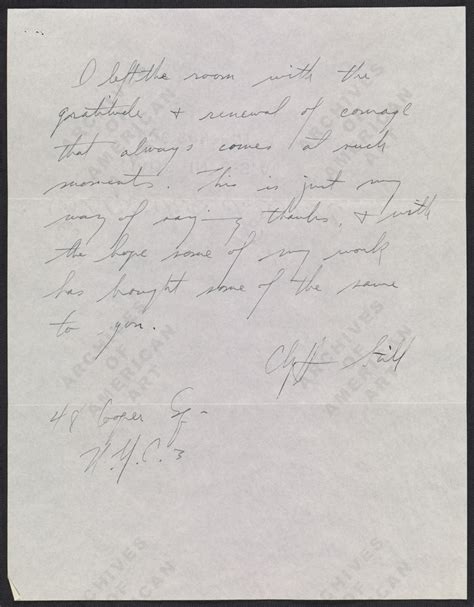 I left the room with the
gratitude & renewal of courage
that always comes at such
moments. This is just my
way of saying thanks, & with
the hope some of my work
has brought some of the same
to you.
Clyff Still
48 Cooper Sq -
N.Y.C. 3
ARCHIVES
OF
AMERICAN
ART